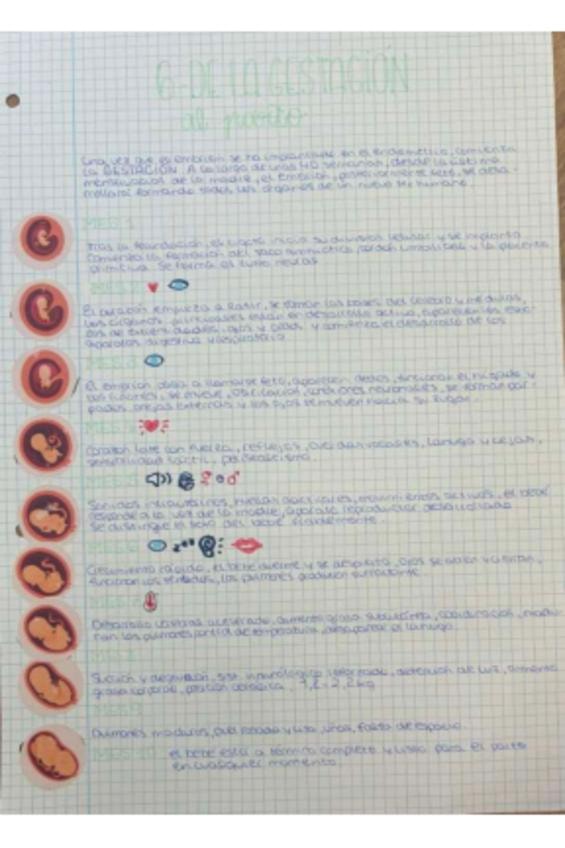 6-DE LA GESTACIÓN
al parto
Una vez que el embrión se ha implantado en el endometrio, comienza
la GESTACIÓN. A lo largo de unas 40 semanas, desde la última
menstruación de la madre, el embrión, posteriormente feto, se desa-
rrollará formando todos los órganos de un nuevo ser humano.
MES 1
Tras la fecundación, el cigoto inicia su división celular y se implanta
Comienza la formación del saco amniótico, cordón umbilical y la placenta
primitiva. Se forma el tubo neural
MES 2
El corazón empieza a latir, se forman las bases del cerebro y médula,
los órganos principales están en desarrollo activo, aparecen
de extremidades, ojos y oídos y comienza el desarrollo de los
aparatos digestivo y respiratorio.
MES 3
El embrión pasa a llamarse feto, aparecen dedos, funcionan el hígado y
los riñones, se mueve, osificación, conexiones neuronales, se forman pár-
pados, orejas externas y los ojos se mueven hacia su lugar.
MES 4
Corazón late con fuerza, reflejos, cuerdas vocales, lanugo y cejas,
sensibilidad táctil, peristaltismo
MES 5
Sonidos intrauterinos, huellas dactilares, movimientos activos, el bebé
responde a la voz de la madre, aparato reproductor desarrollado
Se distingue el sexo del bebé claramente.
MES 6
Crecimiento rápido, el bebé duerme y se despierta, ojos se abren y cierran,
funcionan los sentidos, los pulmones producen surfactante.
MES 7
Desarrollo cerebral acelerado, aumenta grasa subcutánea, coordinación, madu-
ran los pulmones, control de temperatura, desaparece el lanugo.
MES 8
Succión y deglución, sist. neurológico reforzado, detección de luz, aumenta
grasa corporal, posición cefálica, 1,8-2,2kg
MES 9
Pulmones maduros, piel rosada y lisa, uñas, falta de espacio.
MES 10
el bebé está a término completo y listo para el parto
en cualquier momento